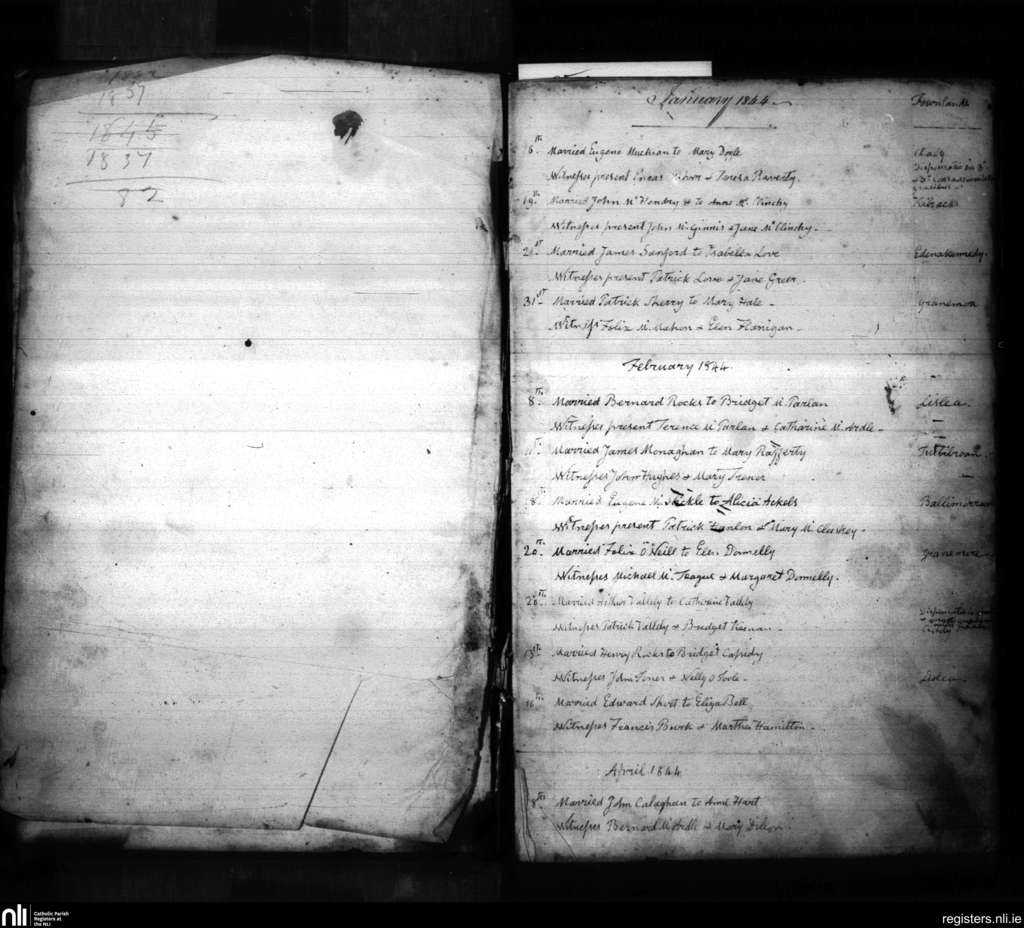 1837
1845
1837
82
January 1844
Townlands
6th Married Eugene to Mary Doyle
Witnesses present & Teresa Raverty.
19th Married John McHendry to Anne McClinchy
Witnesses present John McGinnis & Jane McClinchy
Married James Sanford to Isabella Love
Edenakennedy.
Witnesses present Patrick Love & Jane Greer
31st Married Patrick Sherry to Mary Hale
Granemore
Witness Felix McMahon & Elen Flanigan
February 1844
8th Married Bernard Rocks to Bridget McParlan
Lislea.
Witnesses present Terence McParlan & Catharine McArdle
Married James Monaghan to Mary Rafferty
Witnesses John Hughes & Mary Trener
Married Eugene to Alicia Ackels
Witnesses present Patrick Hanlon & Mary McCleskey
20th Married Felix O'Neill to Elen Donnelly
Granemore
Witnesses Michael McTeague & Margaret Donnelly.
20th Married Arthur Vallely to Catherine Vallely
Witnesses Patrick Vallely & Bridget
Married Henry Rocks to Bridget Cassidy
Witnesses John & Nelly O Toole
Lislea
16th Married Edward Short to Eliza Bell
Witnesses Francis & Martha Hamilton
April 1844
8th Married John Calaghan to Anne Hart
Witnesses Bernard McArdle & Mary
nli
Catholic Parish
Registers at
the NLI
registers.nli.ie